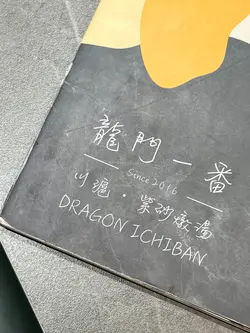 龍門一番
Since 2016
川滬・紫砂燉湯
DRAGON ICHIBAN